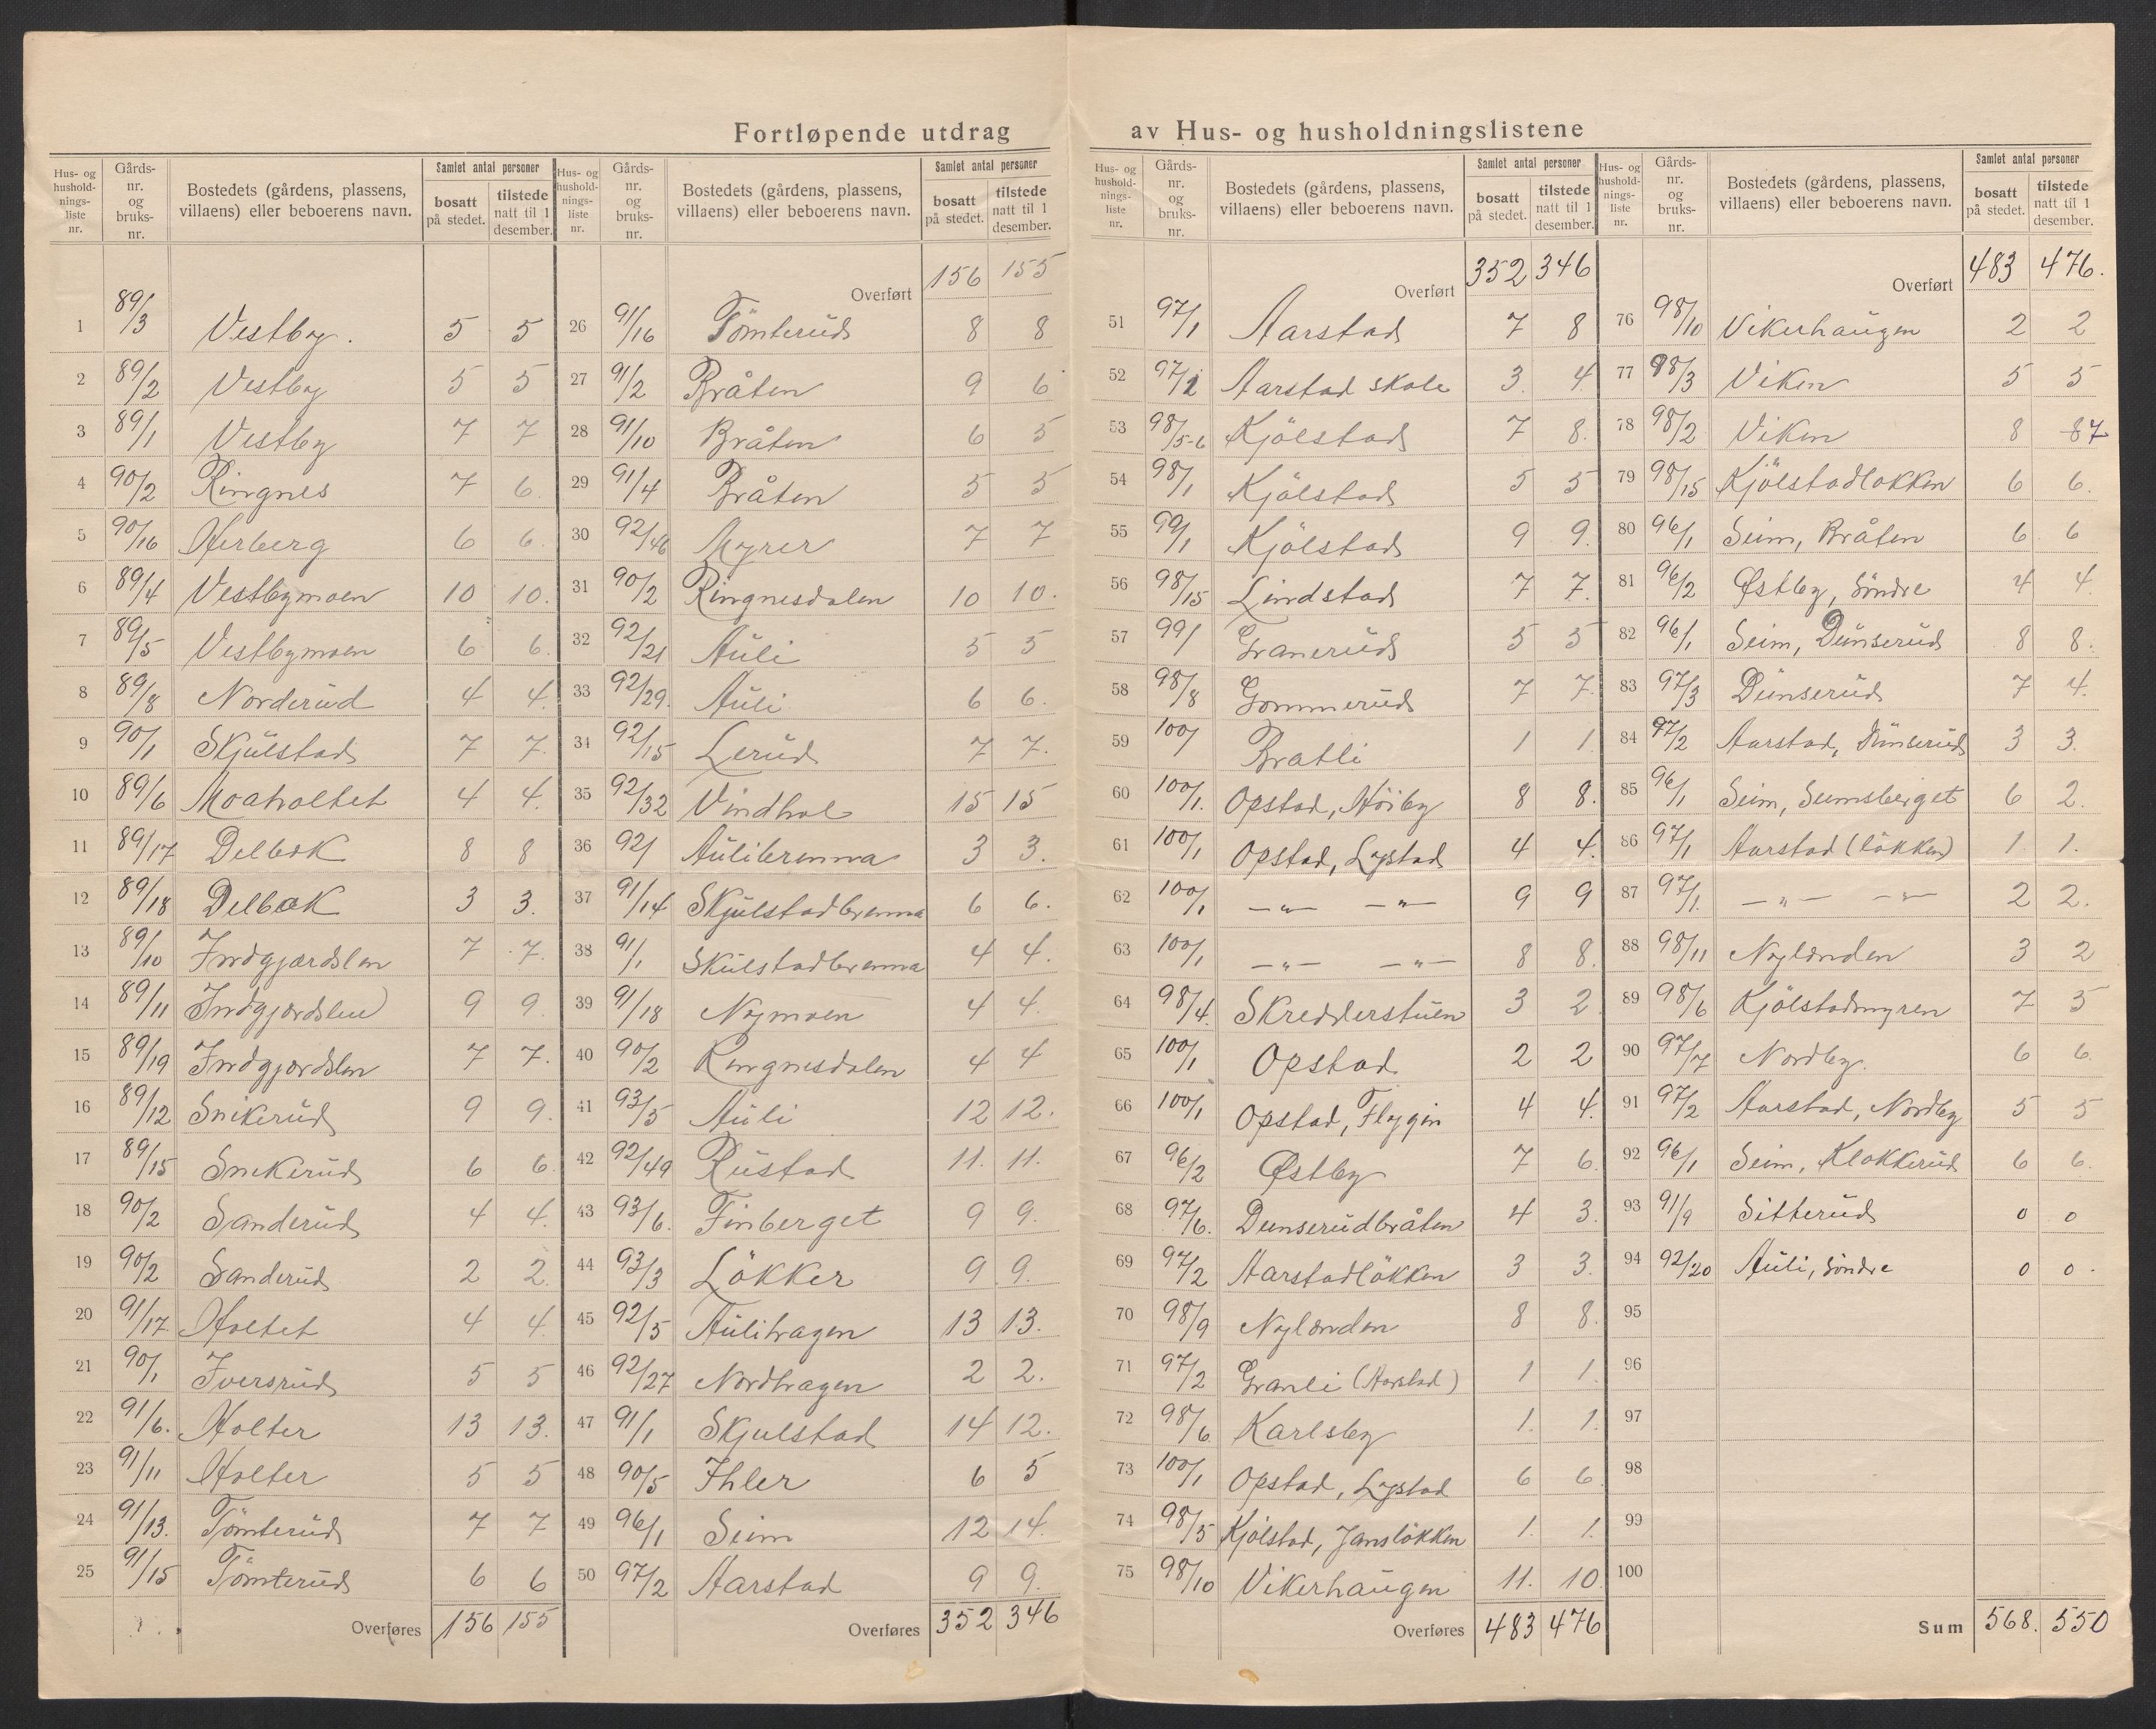 Fortløpende utdrag av Hus- og husholdningslistene
Hus- og hushold-nings-liste nr. Gårds-nr. og bruks-nr. Bostedets (gårdens, plassens, villaens) eller beboerens navn. Samlet antal personer bosatt på stedet. tilstede natt til 1 desember.
1 89/3 Vestby. 5 5
2 89/2 Vestby 5 5
3 89/1 Vestby 7 7
4 90/2 Ringnes 7 6.
5 90/16 Herberg 6 6.
6 89/4 Vestbymoen 10 10.
7 89/5 Vestbymoen 6 6.
8 89/8 Norderud 4 4.
9 90/1 Skjulstad 7 7.
10 89/6 Moaholtet 4 4.
11 89/17 Delbæk 8 8
12 89/18 Delbæk 3 3.
13 89/10 Indgjærdslen 7 7.
14 89/11 Indgjærdslen 9 9.
15 89/19 Indgjærdslen 7 7.
16 89/12 Snikerud 9 9.
17 89/15 Snekerud 6 6.
18 90/2 Sanderud 4 4.
19 90/2 Sanderud 2 2.
20 91/17. Holtet 4 4.
21 90/1 Iversrud 5 5
22 91/6. Holter 13 13.
23 91/11 Holter 5 5
24 91/13. Tömterud 7 7
25 91/15 Tömterud 6 6
Overføres 156 155
Hus- og hushold-nings-liste nr. Gårds-nr. og bruks-nr. Bostedets (gårdens, plassens, villaens) eller beboerens navn. Samlet antal personer bosatt på stedet. tilstede natt til 1 desember.
Overført 156 155
26 91/16 Tömterud 8 8
27 91/2 Bråten 9 6
28 91/10 Bråten 6 5
29 91/4 Bråten 5 5
30 92/46 Myrer 7 7
31 90/2 Ringnesdalen 10 10.
32 92/21 Auli 5 5
33 92/29. Auli 6 6.
34 92/15 Lerud 7 7.
35 92/32 Vindhol 15 15
36 92/1 Aulibrenna 3 3.
37 91/14 Skjulstadbrenna 6 6.
38 91/1 Skulstadbrenna 4 4.
39 91/18 Nymoen 4 4.
40 90/2 Ringnesdalen 4 4
41 93/5 Auli 12 12.
42 92/49 Rustad 11. 11.
43 93/6. Finberget 9 9.
44 93/3 Lökker 9 9.
45 92/5 Aulihagen 13 13.
46 92/27 Nordhagen 2 2.
47 91/1 Skjulstad 14 12.
48 90/5 Ihler 6 5
49 96/1 Seim 12 14.
50 97/2 Aarstad 9 9.
Overføres 352 346
Hus- og hushold-nings-liste nr. Gårds-nr. og bruks-nr. Bostedets (gårdens, plassens, villaens) eller beboerens navn. Samlet antal personer bosatt på stedet. tilstede natt til 1 desember.
Overført 352 346
51 97/1 Aarstad 7 8
52 97/2 Aarstad skole 3. 4.
53 98/5-6 Kjölstad 7 8.
54 98/1 Kjölstad 5 5
55 99/1 Kjölstad 9 9.
56 98/15 Lindstad 7 7.
57 99/1 Granerud 5 5
58 98/8 Gommerud 7 7.
59 100/1 Bratli 1 1.
60 100/1. Opstad, Höiby 8 8.
61 100/1 Opstad, Lystad 4 4.
62 100/1 —"— —"— 9 9
63 100/1 —"— —"— 8 8.
64 98/4. Skredderstuen 3 2
65 100/1 Opstad 2 2
66 100/1 Opstad, Flygin 4 4.
67 96/2 Østby 7 6.
68 97/6. Dunserudbråten 4 3.
69 97/2 Aarstadlökken 3 3.
70 98/9 Nylænden 8 8.
71 97/2 Granli (Aarstad) 1 1.
72 98/6 Karlsby 1. 1.
73 100/1 Opstad, Lystad 6 6
74 98/5 Kjölstad, Janslökken 1. 1.
75 98/10 Vikerhaugen 11. 10
Overføres 483 476
Hus- og hushold-nings-liste nr. Gårds-nr. og bruks-nr. Bostedets (gårdens, plassens, villaens) eller beboerens navn. Samlet antal personer bosatt på stedet. tilstede natt til 1 desember.
Overført 483 476.
76 98/10 Vikerhaugen 2 2
77 98/3 Viken 5 5
78 98/2 Viken 8 8 7
79 98/15 Kjölstadlokken 6 6.
80 96/1 Seim, Bråten 6 6
81 96/2 Østby, Söndre 4 4.
82 96/1 Seim, Dunserud 8 8.
83 97/3 Dunserud 7 4.
84 97/2 Aarstad, Dunserud 3 3.
85 96/1 Seim, Seimsberget 6 2.
86 97/1 Aarstad (lökken) 1. 1.
87 97/1. —"— —"— 2 2.
88 98/11 Nylænden 3 2
89 98/6 Kjölstadmyren 7 5
90 97/7 Nordby. 6 6.
91 97/2 Aarstad, Nordby 5 5
92 96/1 Seim, Klokkerud 6 6.
93 91/9 Sitterud 0 0
94 92/20 Auli, Söndre 0 0.
95
96
97
98
99
100
Sum 568. 550